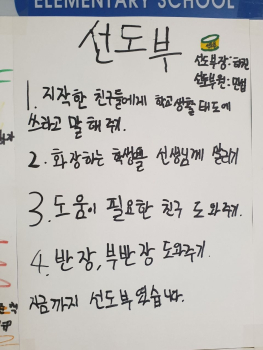 ELEMENTARY SCHOOL
선도부
선도부장:
선도부원: 민섭
1. 지작한 친구들에게 학교생활 태도에
쓰라고 말해주기.
2. 화장하는 학생을 선생님께 알리기
3. 도움이 필요한 친구 도와주기.
4. 반장, 부반장 도와주기
지금까지 선도부였습니다.